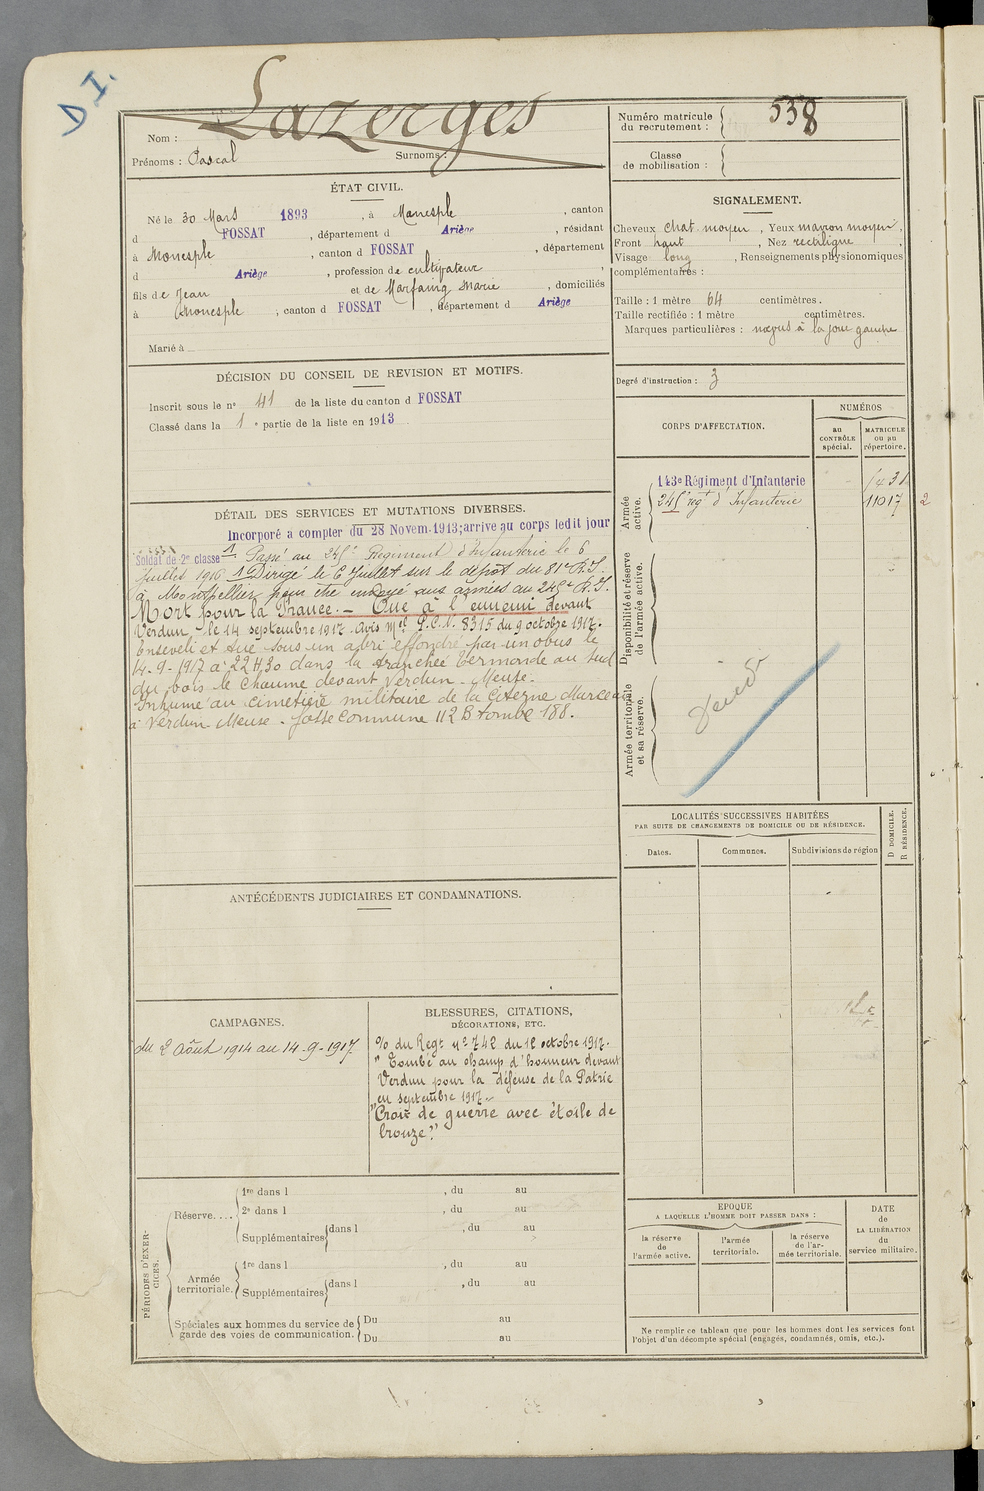 D I.
Lazerges
Nom :
Prénoms : Pascal Surnoms :
Numéro matricule du recrutement : 538
Classe de mobilisation :
ÉTAT CIVIL.
Né le 30 Mars 1893, à Monesple, canton
d FOSSAT, département d Ariège, résidant
à Monesple, canton d FOSSAT, département
d Ariège, profession de cultivateur
fils de Jean et de Marfaing Marie, domiciliés
à Monesple, canton d FOSSAT, département d Ariège
Marié à
SIGNALEMENT.
Cheveux chat moyen, Yeux marron moyen,
Front haut, Nez rectiligne,
Visage long, Renseignements physionomiques
complémentaires :
Taille : 1 mètre 64 centimètres.
Taille rectifiée : 1 mètre centimètres.
Marques particulières : nœvus à la joue gauche
Degré d'instruction : 3
DÉCISION DU CONSEIL DE REVISION ET MOTIFS.
Inscrit sous le nº 41 de la liste du canton d FOSSAT
Classé dans la 1e partie de la liste en 1913
CORPS D'AFFECTATION.
NUMÉROS
au CONTRÔLE spécial.
MATRICULE ou au répertoire.
Armée active.
143e Régiment d'Infanterie
245e regt d'Infanterie 11017 2
Disponibilité et réserve de l'armée active.
Armée territoriale et sa réserve.
DÉTAIL DES SERVICES ET MUTATIONS DIVERSES.
Incorporé a compter du 28 Novem. 1913; arrive au corps ledit jour
Soldat de 2e classe 1 Passé au 245e Régiment d'Infanterie le 6
juillet 1916 1 Dirigé le 6 Juillet sur le dépôt du 81e R.I.
à Montpellier pour être envoyé aux armées au 245e R.I.
Mort pour la France. - Tué à l'ennemi devant
Verdun le 14 septembre 1917. Avis Mel P.C.N. 8315 du 9 octobre 1917.
Enseveli et tué sous un abri effondré par un obus le
14-9-1917 à 22H30 dans la tranchée Termonde au Sud
du bois le Chaume devant Verdun - Meuse.
Inhumé au cimetière militaire de la Citerne Marceau
à Verdun Meuse - fosse commune 112 B tombe 188.
Décédé
LOCALITÉS SUCCESSIVES HABITÉES
PAR SUITE DE CHANGEMENTS DE DOMICILE OU DE RÉSIDENCE.
Dates. Communes. Subdivisions de région
D DOMICILE. R RÉSIDENCE.
ANTÉCÉDENTS JUDICIAIRES ET CONDAMNATIONS.
CAMPAGNES.
du 2 Août 1914 au 14-9-1917
BLESSURES, CITATIONS,
DÉCORATIONS, ETC.
O/o du Regt nº 742 du 12 octobre 1917.
"Tombé au champ d'honneur devant
Verdun pour la défense de la Patrie
en septembre 1917."
"Croix de guerre avec étoile de
bronze"
PÉRIODES D'EXERCICES.
Réserve....
1re dans l , du au
2e dans l , du au
Supplémentaires dans l , du au
Armée territoriale.
1re dans l , du au
Supplémentaires dans l , du au
Spéciales aux hommes du service de garde des voies de communication.
Du au
Du au
EPOQUE
A LAQUELLE L'HOMME DOIT PASSER DANS :
la réserve de l'armée active.
l'armée territoriale.
la réserve de l'armée territoriale.
DATE de LA LIBÉRATION du service militaire.
Ne remplir ce tableau que pour les hommes dont les services font
l'objet d'un décompte spécial (engagés, condamnés, omis, etc.).